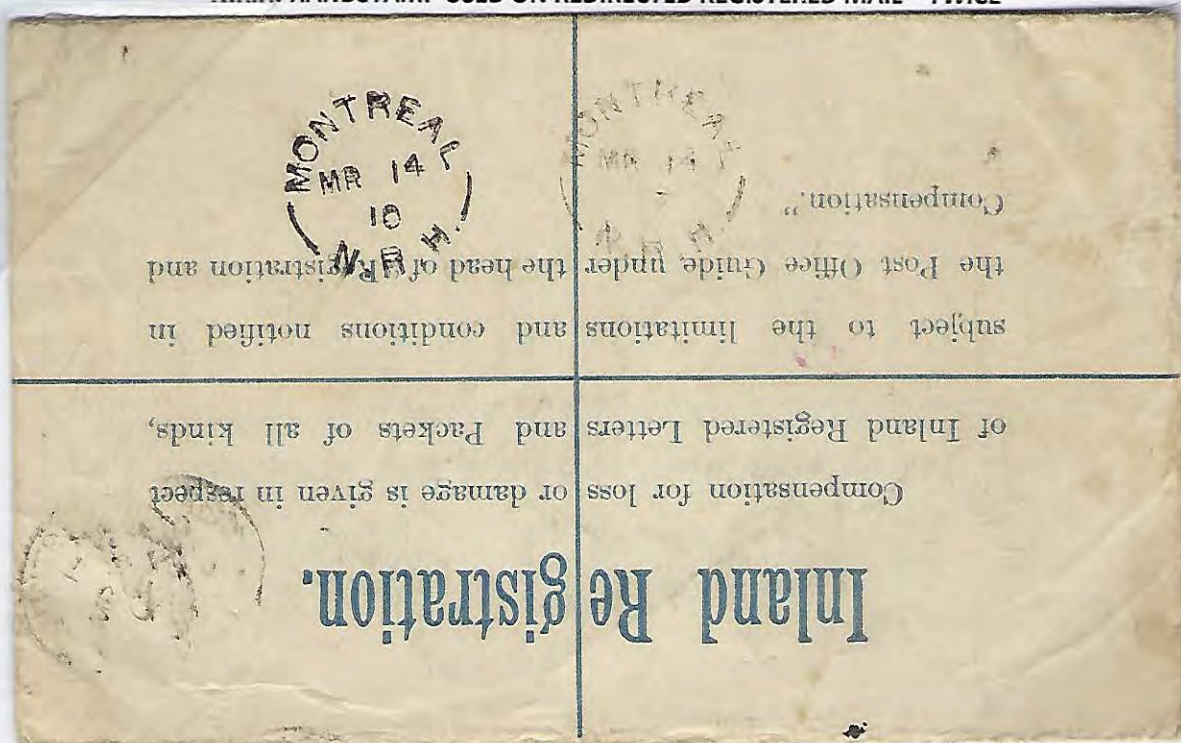 HANDSTAMP USED ON REDIRECTED REGISTERED MAIL - TWICE
MONTREAL
MR 14
10
N.R.H.
MONTREAL
MR 14
Inland Registration.
Compensation for loss or damage is given in respect
of Inland Registered Letters and Packets of all kinds,
subject to the limitations and conditions notified in
the Post Office Guide under the head of "Registration and
Compensation."